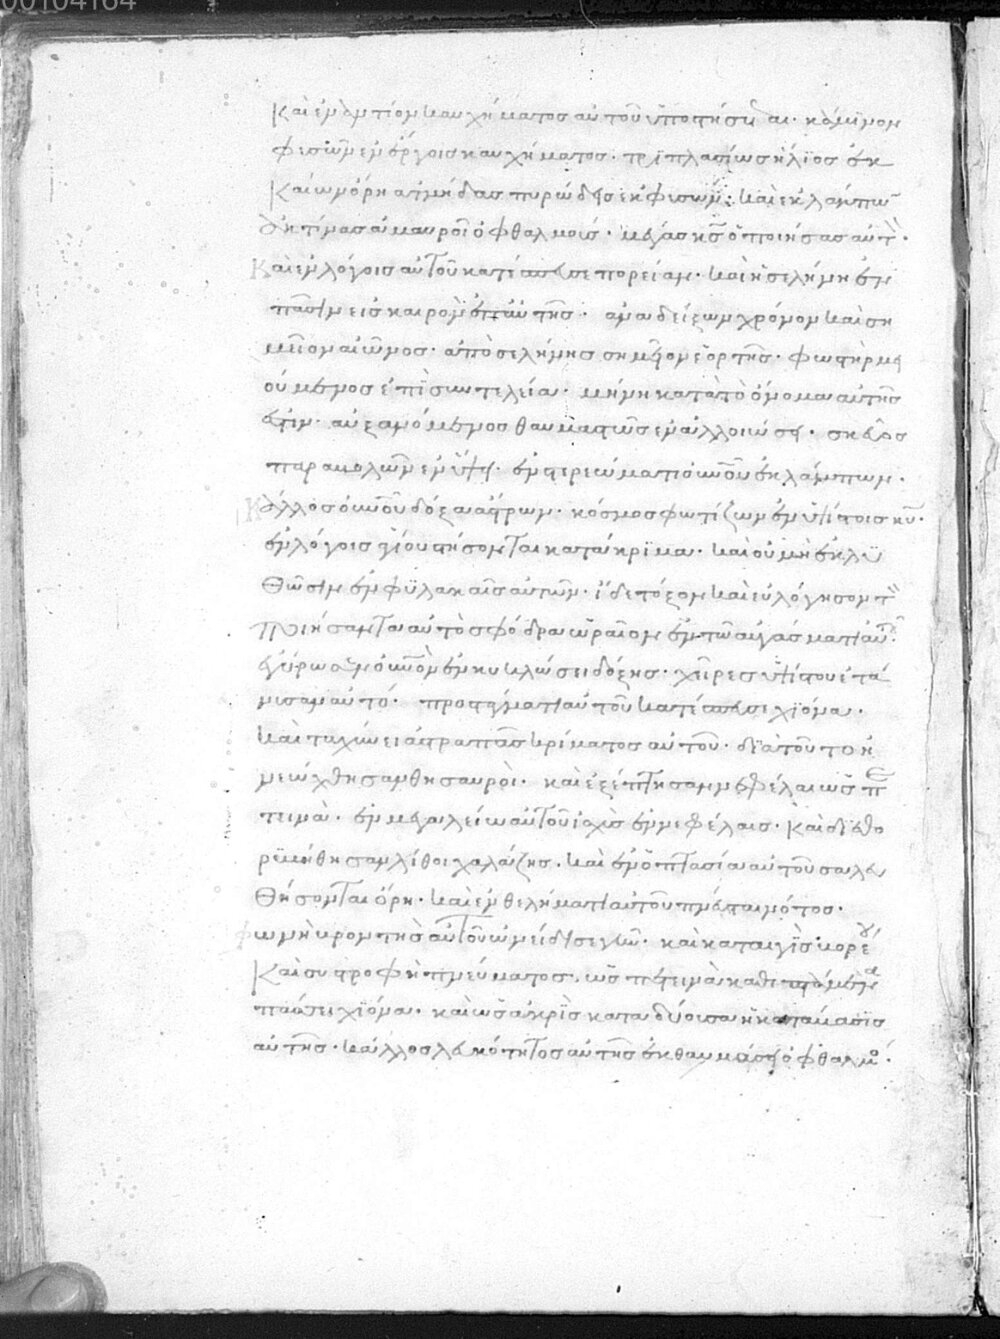 00104164
Καὶ ἐναντίον καυχήματος αὐτοῦ τίς ὑποστήσεται· κάμινον
φυσῶν ἐν ἔργοις καυχήματος· τριπλασίως ἥλιος ἐκ
Καίων ὄρη ἀτμίδας πυρώδεις ἐκφυσῶν· καὶ ἐκλάμπων
ἀκτῖνας ἀμαυροῖ ὀφθαλμούς· μέγας κς ὁ ποιήσας αὐτὸν·
Καὶ ἐν λόγοις αὐτοῦ κατέσπευσε πορείαν· καὶ ἡ σελήνη ἐν
πᾶσιν εἰς καιρὸν αὐτῆς· ἀναδείξων χρόνον καὶ ση
μεῖον αἰῶνος· ἀπὸ σελήνης σημεῖον ἑορτῆς· φωστὴρ μει
ούμενος ἐπὶ συντελεία· μήνη κατὰ τὸ ὄνομα αὐτῆς
ἐστίν· αὐξανόμενος θαυμαστῶς ἐν ἀλλοιώσει· σκεῦος
παρεμβολῶν ἐν ὕψει· ἐν στερεώματι οὐνοῦ ἐκλάμπων·
Κάλλος οὐνοῦ δόξα ἄστρων· κόσμος φωτίζων ἐν ὑψίστοις κυ·
ἐν λόγοις ἁγίου στήσονται κατὰ κρίμα· καὶ οὐ μὴ ἐκλυ
θῶσιν ἐν φυλακαῖς αὐτῶν· ἴδε τόξον καὶ εὐλόγησον τὸν
ποιήσαντα αὐτὸ σφόδρα ὡραῖον ἐν τῶ αὐγάσματι αὐτοῦ·
ἐγύρωσεν οὐνὸν ἐν κυκλώσει δόξης· χεῖρες ὑψίστου ἐτά
νυσαν αὐτό· προστάγματι αὐτοῦ κατέσπευσε χιόνα·
καὶ ταχύνει ἀστραπὰς κρίματος αὐτοῦ· διὰ τοῦτο ἠ
νεώχθησαν θησαυροὶ· καὶ ἐξέπτησαν νεφέλαι ὡς πε
τεινὰ· ἐν μεγαλείω αὐτοῦ ἴσχυσεν νεφέλας· Καὶ διεθ
ρύβησαν λίθοι χαλάζης· καὶ ἐν ὀπτασία αὐτοῦ σαλευ
θήσονται ὄρη· καὶ ἐν θελήματι αὐτοῦ πνεύσεται νότος·
φωνὴ βροντῆς αὐτοῦ ὠνείδισε γῆν· καὶ καταιγὶς βορέου
Καὶ συστροφὴ πνεύματος· ὡς πετεινὰ καθιπτάμενα
πάσσει χιόνα· καὶ ὡς ἀκρὶς καταδύουσα ἡ κατάβασις
αὐτῆς· κάλλος λευκότητος αὐτῆς ἐκθαυμάσει ὀφθαλμός·